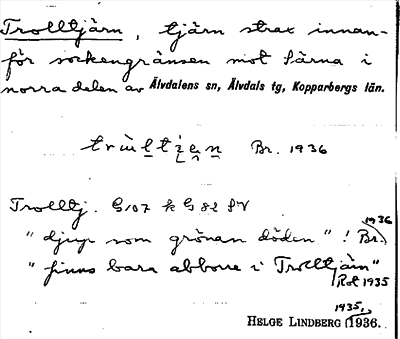 Trolltjärn, tjärn strax innan-
för sockengränsen mot Särna i
norra delen av Älvdalens sn, Älvdals tg, Kopparbergs län.
Br. 1936
Trolltj. G107 k G82 fV
1936
"djup som grönan döden"! Br.
"finns bara abborre i Trolltjärn"
Rot 1935
1935,
HELGE LINDBERG 1936.